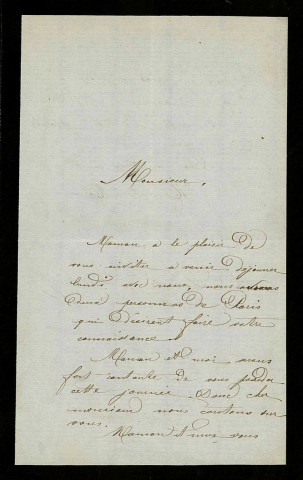 Monsieur,
Maman a le plaisir de
vous inviter a venir déjeuner
lundi avec nous, nous avons
deux personnes de Paris
qui désirent faire votre
connaissance.
Maman et moi
fort contente de vous
cette journée. Donc cher
monsieur nous contons sur
vous.
Maman et vous